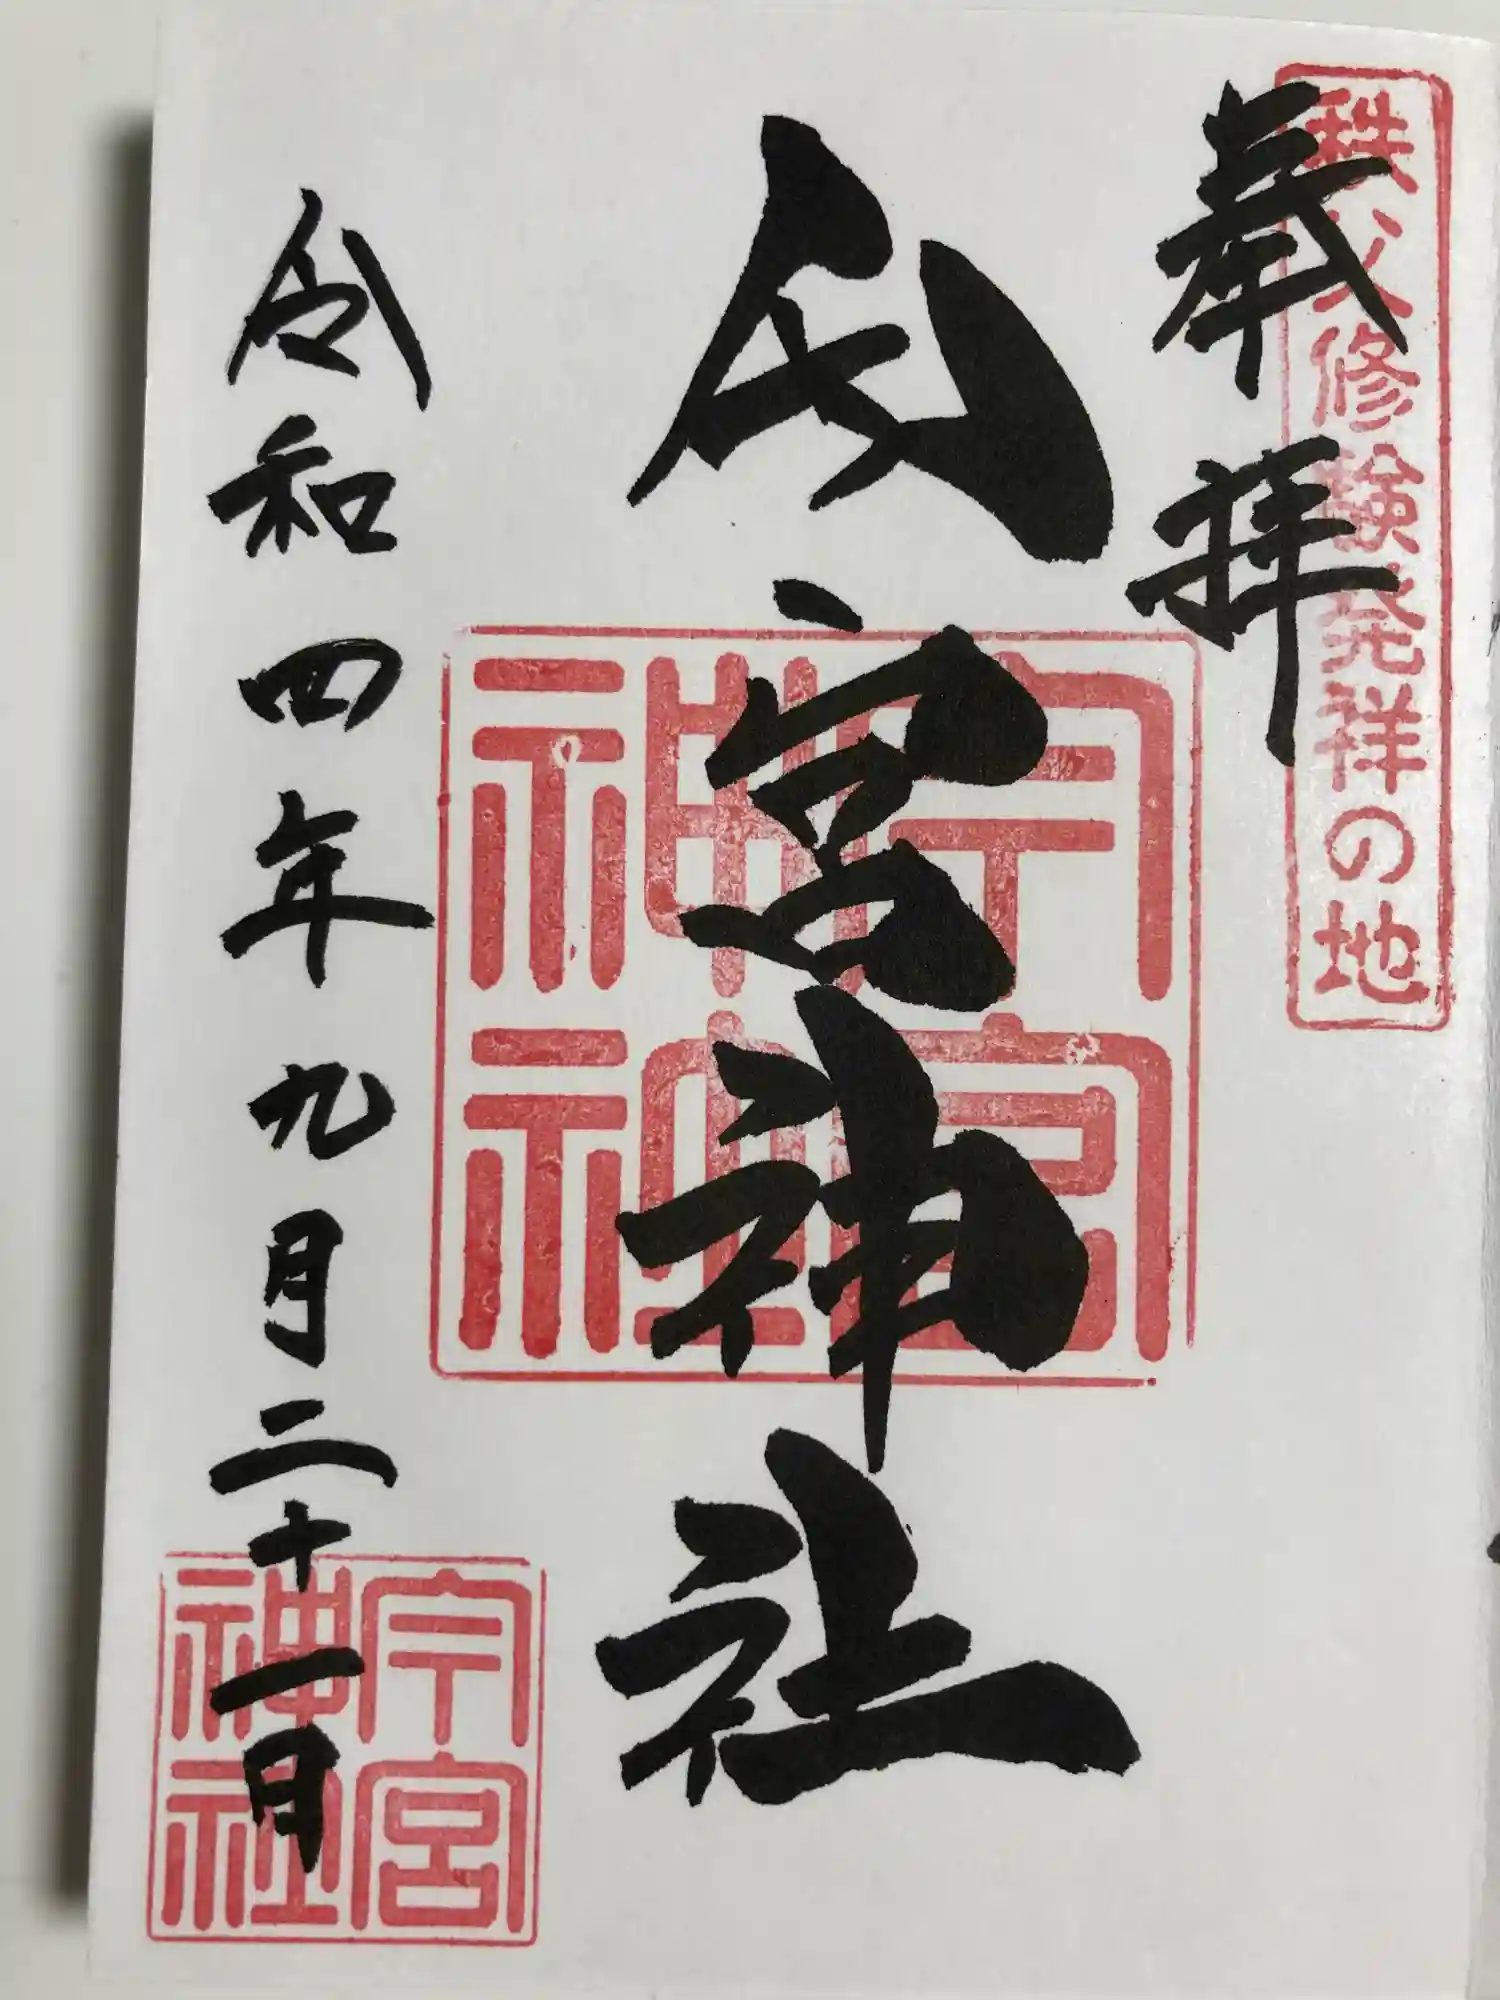 秩父修験発祥の地
奉拝
今宮神社
今宮
神社
令和四年九月二十一日
今宮
神社